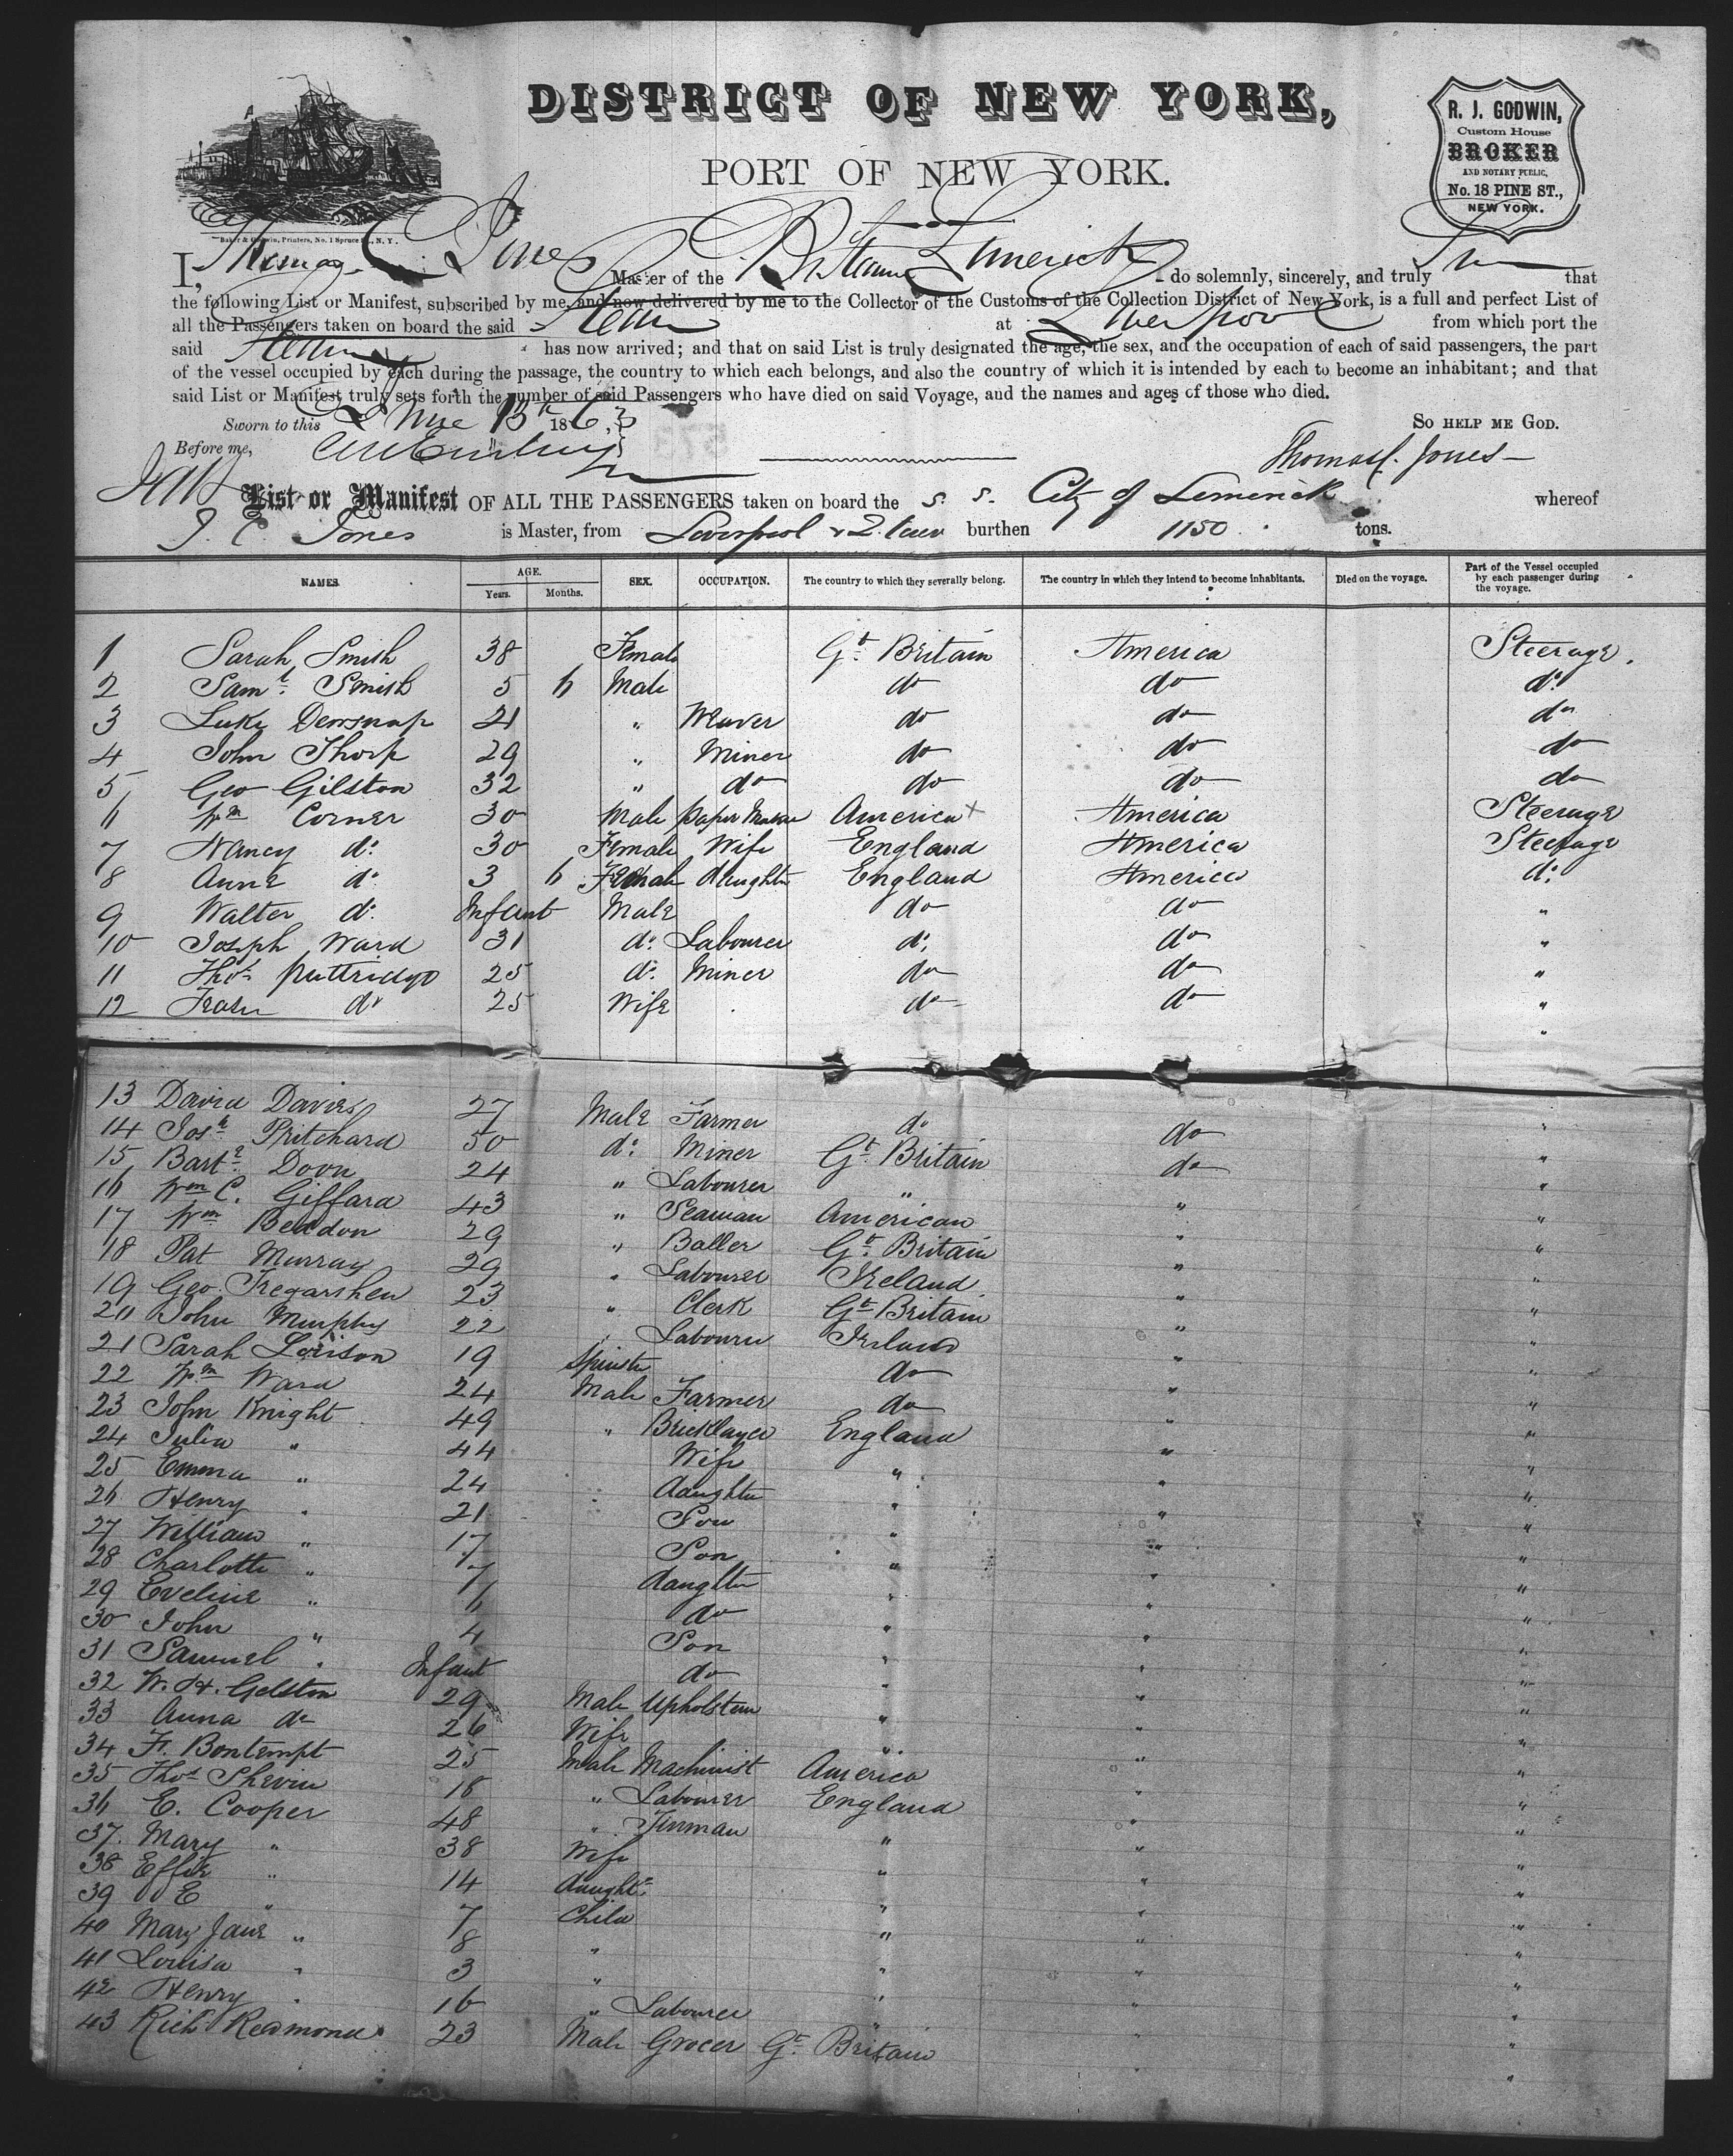 DISTRICT OF NEW YORK,
PORT OF NEW YORK.
R. J. GODWIN,
Custom House
BROKER
AND NOTARY PUBLIC,
No. 18 PINE ST.,
NEW YORK.
Baker & Godwin, Printers, No. 1 Spruce St., N. Y.
I, Thomas C Jones Master of the Limerick do solemnly, sincerely, and truly that
the following List or Manifest, subscribed by me, and now delivered by me to the Collector of the Customs of the Collection District of New York, is a full and perfect List of
all the Passengers taken on board the said at Liverpool from which port the
said has now arrived; and that on said List is truly designated the age, the sex, and the occupation of each of said passengers, the part
of the vessel occupied by each during the passage, the country to which each belongs, and also the country of which it is intended by each to become an inhabitant; and that
said List or Manifest truly sets forth the number of said Passengers who have died on said Voyage, and the names and ages of those who died.
Sworn to this June 13th 1863 SO HELP ME GOD.
Before me, Thomas C. Jones
List or Manifest OF ALL THE PASSENGERS taken on board the S. S. City of Limerick whereof
T. C. Jones is Master, from Liverpool & burthen 1150 tons.
NAMES. AGE. Years. Months. SEX. OCCUPATION. The country to which they severally belong. The country in which they intend to become inhabitants. Died on the voyage. Part of the Vessel occupied by each passenger during the voyage.
1 Sarah Smith 38 Female Gt. Britain America Steerage.
2 Saml. Smith 5 6 Male do do do
3 Luke Dewsnap 21 " Weaver do do do
4 John Thorp 29 " Miner do do do
5 Geo Gilston 32 " do do do do
6 Wm Corner 30 Male Paper Maker America x America Steerage
7 Nancy do 30 Female Wife England America Steerage
8 Anne do 3 6 Female daughter England America do
9 Walter do Infant Male do do "
10 Joseph Ward 31 do Labourer do do "
11 Thos. Puttridge 25 do Miner do do "
12 do 25 Wife do do "
"
13 David Davies 27 Male Farmer do do "
14 Josh Pritchard 50 do Miner Gt. Britain do "
15 Doon 24 " Labourer " "
16 Wm C. Giffard 43 " Seaman American " "
17 Wm Beddon 29 " Baller Gt. Britain " "
18 Pat Murray 29 " Labourer Ireland " "
19 Geo. Tregarthen 23 " Clerk Gt Britain " "
20 John Murphy 22 " Labourer Ireland " "
21 Sarah 19 Spinster do " "
22 Wm Ward 24 Male Farmer do " "
23 John Knight 49 " Bricklayer England " "
24 Julia " 44 Wife " " "
25 Emma " 24 daughter " " "
26 Henry " 21 Son " " "
27 William " 17 Son " " "
28 Charlotte " 7 daughter " " "
29 Eveline " 6 do " " "
30 John " 4 Son " " "
31 Samuel " Infant do " " "
32 W. H. Gelston 29 Male Upholsterer " " "
33 Anna do 26 Wife " " "
34 F. Bontempt 25 Male Machinist America " "
35 Thos Shevin 18 " Labourer England " "
36 E. Cooper 48 " Tinman " " "
37 Mary " 38 Wife " " "
38 Effie " 14 daught. " " "
39 E " 7 Child " " "
40 Mary Jane " 8 " " " "
41 Louisa " 3 " " " "
42 Henry " 16 " Labourer " " "
43 Rich Redmond 23 Male Grocer Gt. Britain " "